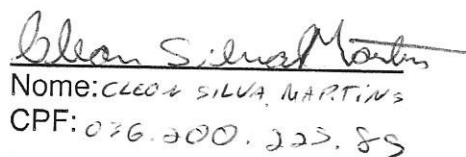 Cleon Silva Martins
Nome: CLEON SILVA MARTINS
CPF: 036.200.225.89